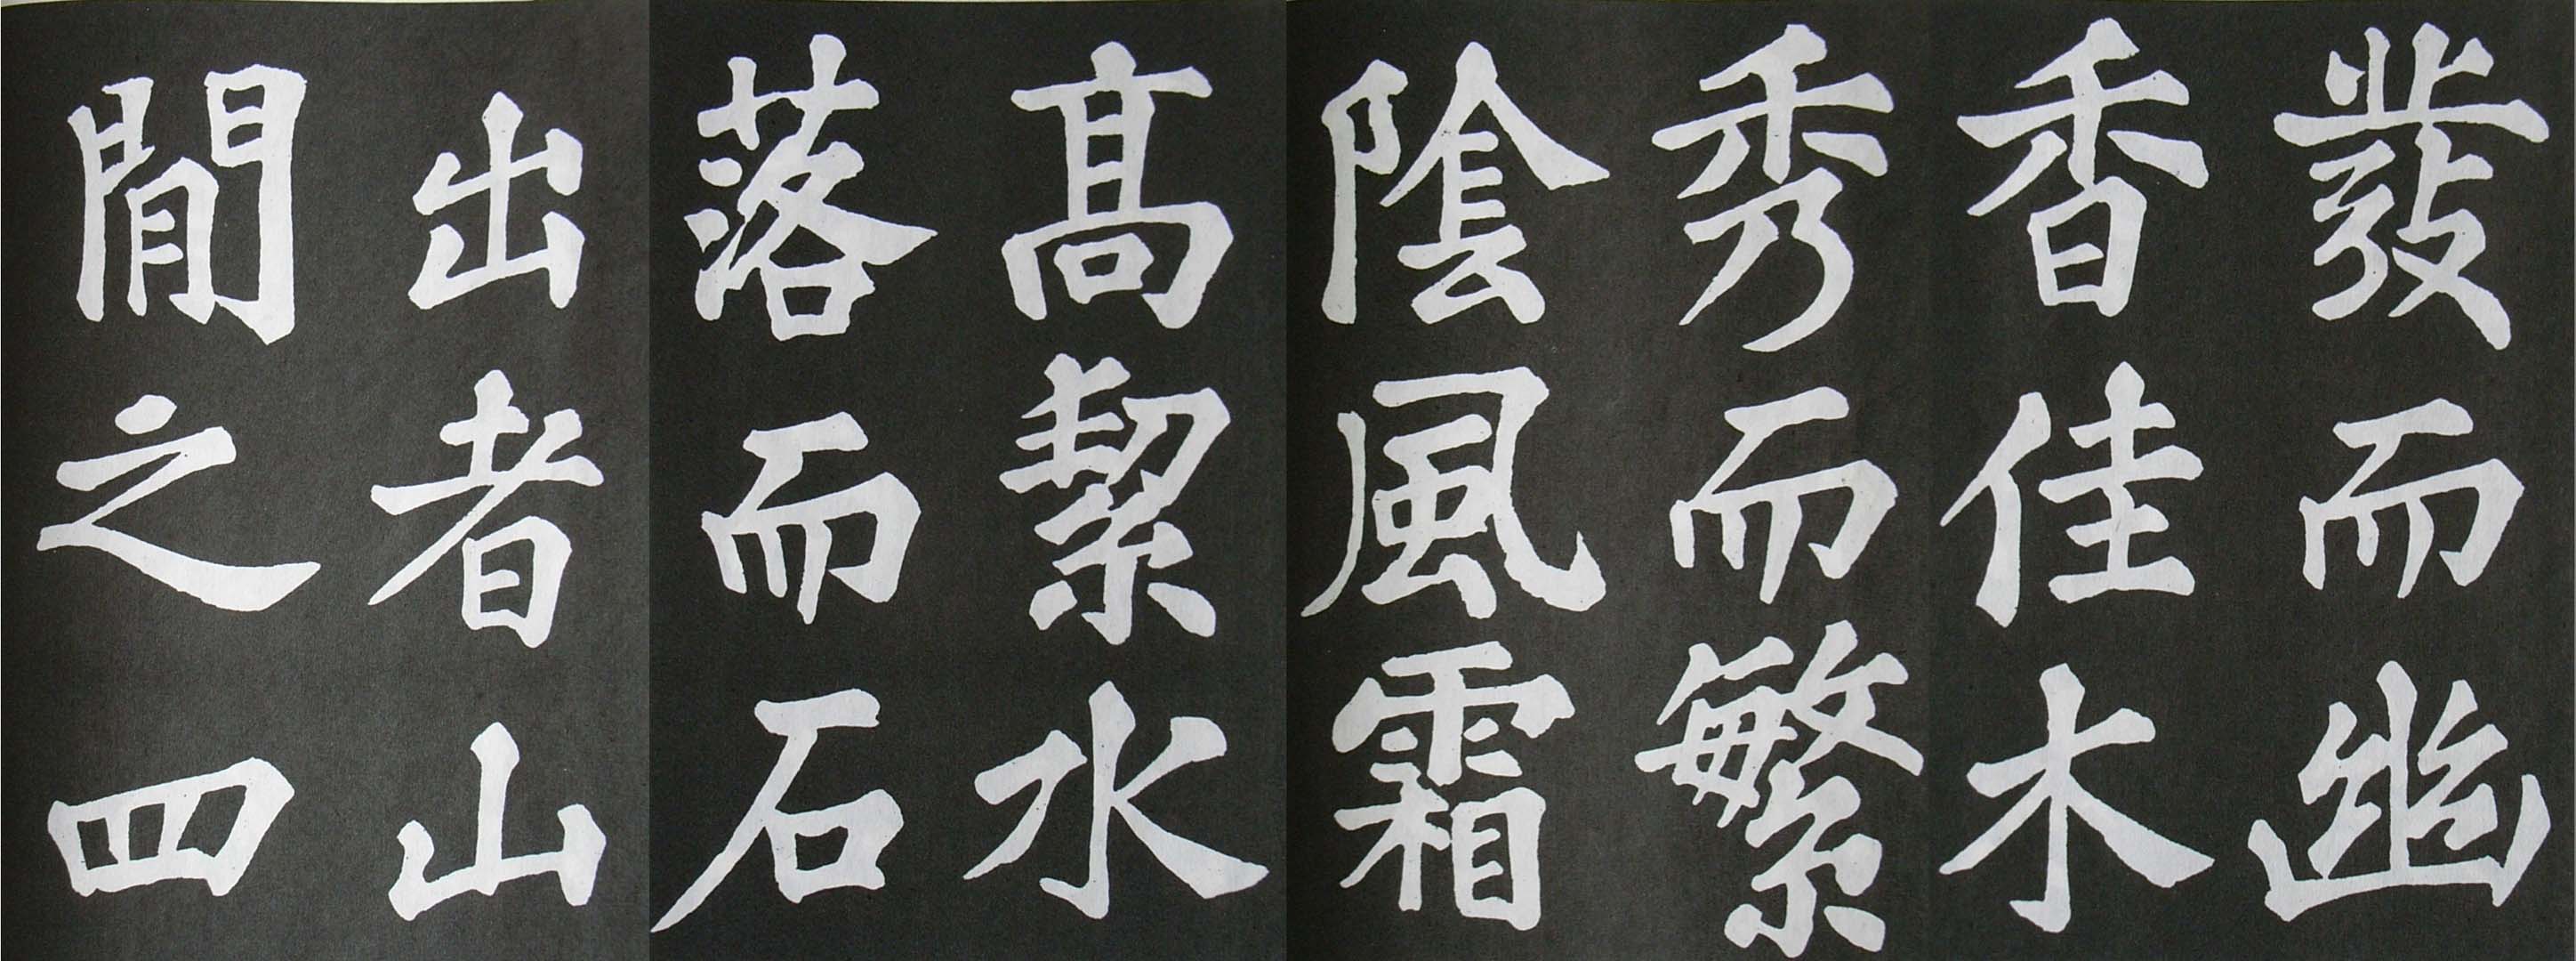 發而幽
香佳木
秀而繁
陰風霜
高絜水
落而石
出者山
閒之四